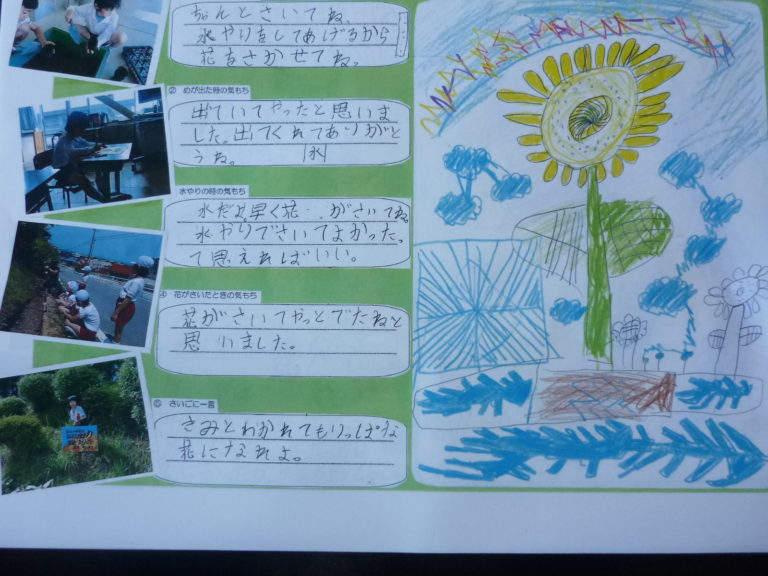 ちゃんとさいてね、
水やりをしてあげるから
花をさかせてね。
② めが出た時の気もち
出ていてやったと思いま
した。出てくれてありがと
うね。
水
水やりの時の気もち
水だよ。早く花 がさいてね。
水やりでさいてよかった。
て思えればいい。
④ 花がさいたときの気もち
花がさいてやっとでたねと
思いました。
⑤ さいごに一言
きみとわかれてもりっぱな
花になれよ。